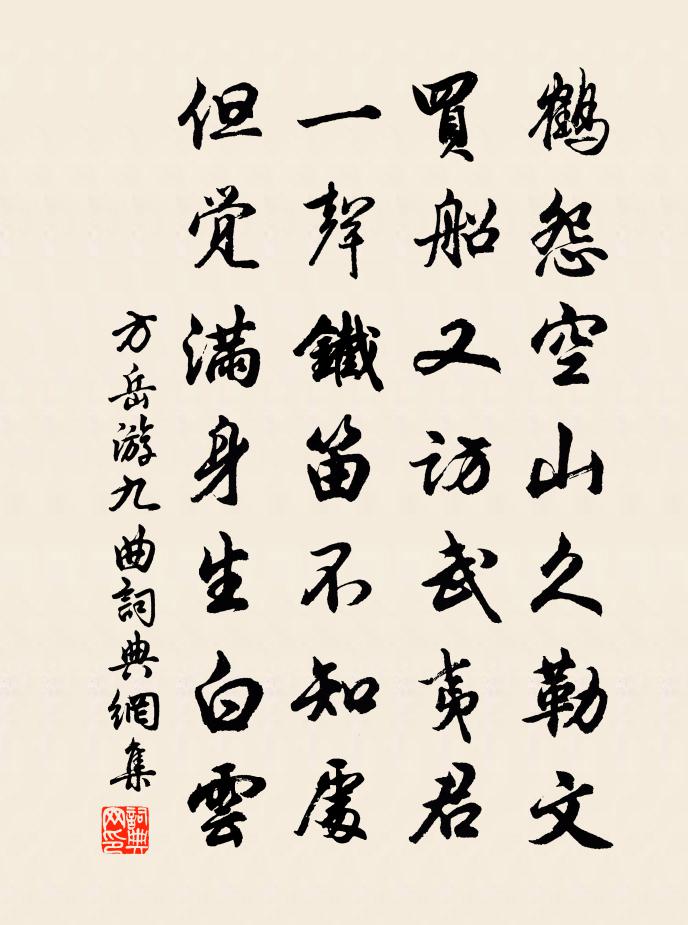 鶴怨空山久勒文
買船又訪武夷君
一聲鐵笛不知處
但覚滿身生白雲
方岳游九曲詞典網集
詞典网印